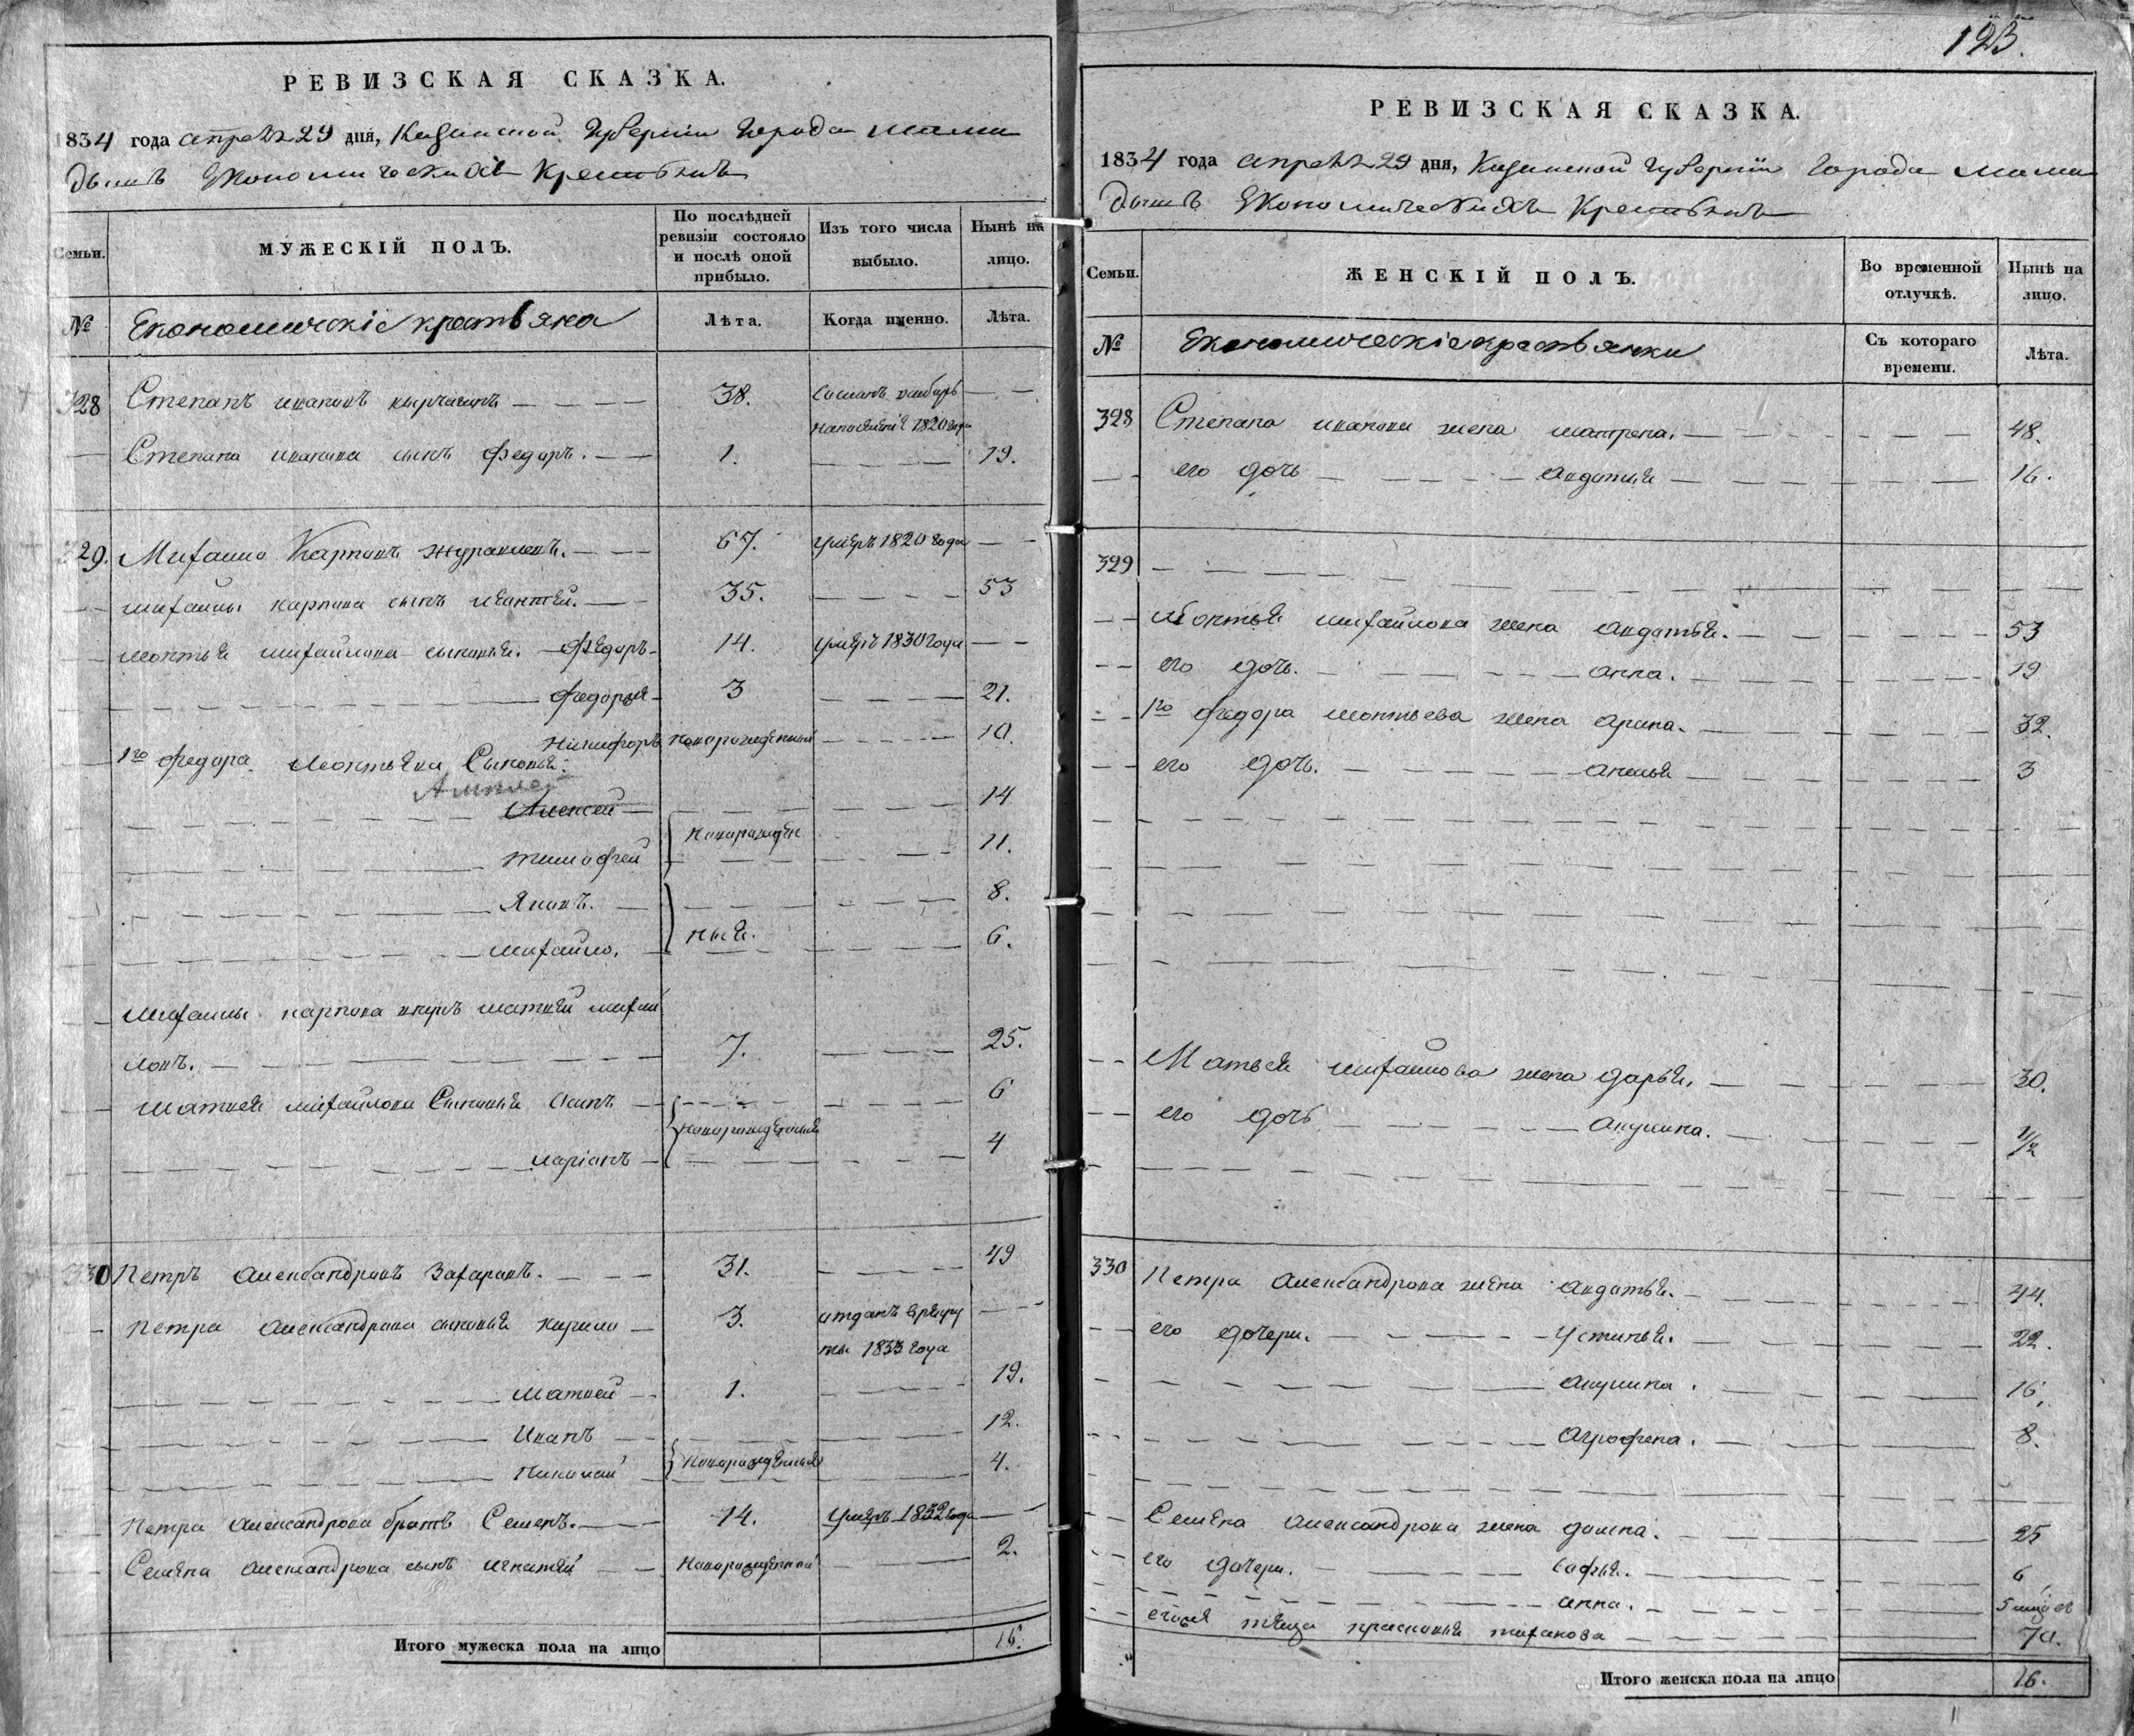 РЕВИЗСКАЯ СКАЗКА.
1834 года апреля 29 дня, Казанской Губернии Города Мама
дышъ Экономическихъ Крестьянъ
Семьи.
МУЖЕСКІЙ ПОЛЪ.
По послѣдней ревизіи состояло и послѣ оной прибыло.
Изъ того числа выбыло.
Нынѣ на лицо.
№
Економическіе крестьяна
Лѣта.
Когда именно.
Лѣта.
328 Степанъ ивановъ 38. Сосланъ
1820 года
Степана иванова сынъ Федоръ. 1. 19.
329. Михаило Карповъ журавлевъ. 67. умеръ 1820 года
михаилы карпова сынъ леонтей. 35. 53
леонтья михайлова сыновья. Федоръ 14. умеръ 1830 года
федоръ 3 21.
Никифоръ новорожденный 10.
1го федора леонтьева Сыновья.
Алексей 14
тимофей новорожден 11.
Яковъ. 8.
михайло. ныя. 6.
михаилы карпова внукъ матвей михаи
ловъ. 7. 25.
матвея михайлова Сыновья Осипъ 6
ларіонъ новорожденныя 4
330 Петръ Александровъ Захаровъ. 31. 49
петра Александрова сыновья кирило 3. отданъ врекру
ты 1833 года
матвей 1. 19.
Иванъ 12.
Николай новорожденныя 4.
Петра Александрова братъ Семенъ. 14. умеръ 1832 года
Семена Александрова сынъ игнатей новорожденной 2.
Итого мужеска пола на лицо 16.
123.
РЕВИЗСКАЯ СКАЗКА.
1834 года апреля 29 дня, Казанской Губерніи Города Мама
дышъ Экономическихъ Крестьянъ
Семьи.
ЖЕНСКІЙ ПОЛЪ.
Во временной отлучкѣ.
Нынѣ на лицо.
№
Економическіе крестьянки
Съ котораго времени.
Лѣта.
328 Степана иванова жена матрена. 48.
его дочь Авдотья 16.
329
леонтья михайлова жена авдотья. 53
его дочь. анна. 19
1го федора леонтьева жена арина. 32.
его дочь. 3
Матвея михайлова жена дарья. 30.
его дочь Акулина. 1/2
330 Петра Александрова жена авдотья. 44.
его дочери. Устинья. 22.
акулина. 16.
Агрофена. 8.
Семена Александрова жена домна. 25
его дочери. софья. 6
анна. 5 мцов
теща прасковья 70.
Итого женска пола на лицо 16.